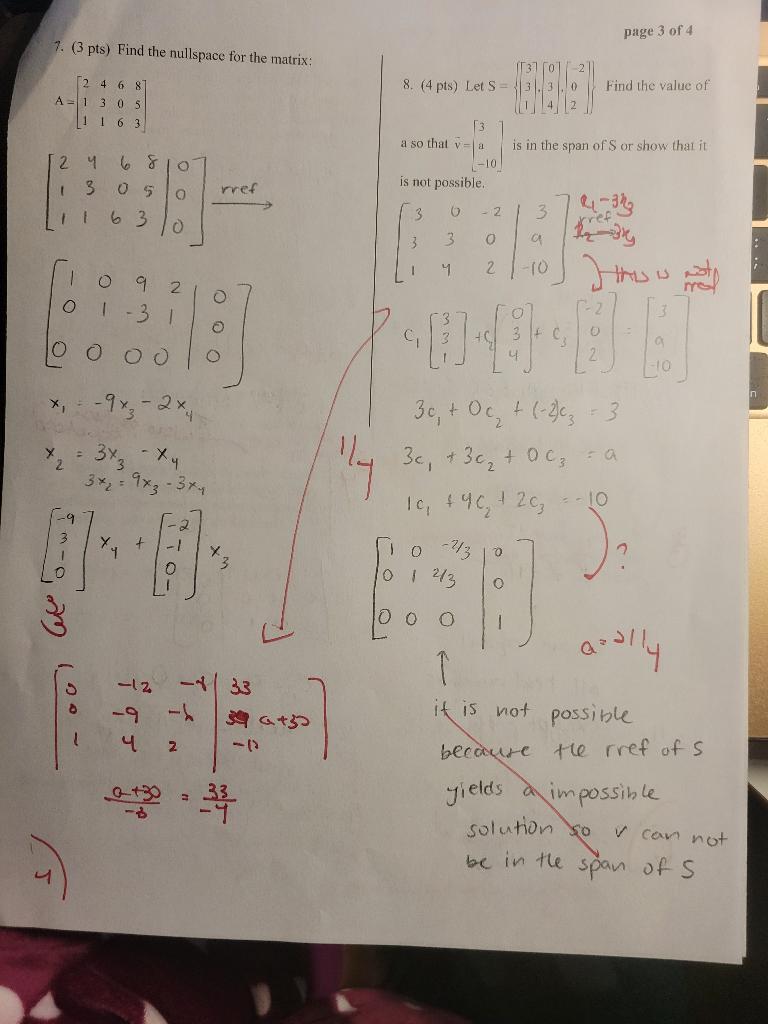 page 3 of 4
7. (3 pts) Find the nullspace for the matrix:
A = [2 4 6 8
1 3 0 5
1 1 6 3]
[2 4 6 8 | 0
1 3 0 5 | 0
1 1 6 3 | 0] rref →
[1 0 9 2 | 0
0 1 -3 1 | 0
0 0 0 0 | 0]
x₁ = -9x₃ - 2x₄
x₂ = 3x₃ - x₄
3x₂ = 9x₃ - 3x₄
[-9
3
1
0] x₄ + [-2
-1
0
1] x₃
3
[0 -12 -8 | 33
0 -9 -6 | a+30
1 4 2 | -10]
(a+30)/-6 = 33/-4
4
8. (4 pts) Let S = {[3 3 1], [0 3 4], [-2 0 2]} Find the value of
a so that v = [3 a -10] is in the span of S or show that it
is not possible.
[3 0 -2 | 3
3 3 0 | a
1 4 2 | -10]
R₁-3R₃
rref
R₂-3R₃
this is not
rref
c₁ [3 3 1] + c₂ [0 3 4] + c₃ [-2 0 2] = [3 a -10]
3c₁ + 0c₂ + (-2)c₃ = 3
1/4
3c₁ + 3c₂ + 0c₃ = a
1c₁ + 4c₂ + 2c₃ = -10
[1 0 -2/3 | 0
0 1 2/3 | 0
0 0 0 | 1]
?
it is not possible
because the rref of S
yields a impossible
solution so v can not
be in the span of S